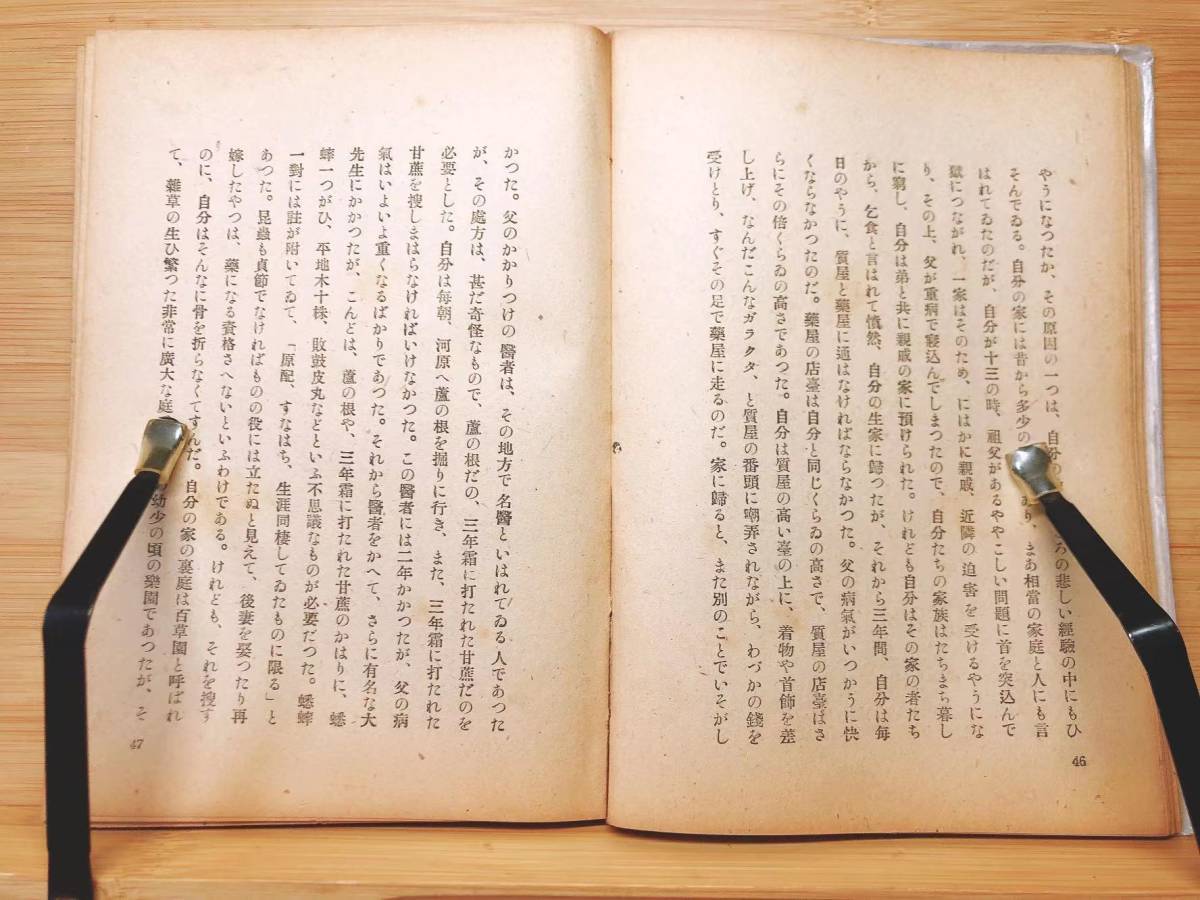 やうになつたか、その原因の一つは、自分の ろの悲しい經驗の中にもひ
そんでゐる。自分の家には昔から多少の り、まあ相當の家庭と人にも言
はれてゐたのだが、自分が十三の時、祖父があるややこしい問題に首を突込んで
獄につながれ、一家はそのため、にはかに親戚、近隣の迫害を受けるやうにな
り、その上、父が重病で寢込んでしまつたので、自分たちの家族はたちまち暮し
に窮し、自分は弟と共に親戚の家に預けられた。けれども自分はその家の者たち
から、乞食と言はれて憤然、自分の生家に歸つたが、それから三年間、自分は毎
日のやうに、質屋と藥屋に通はなければならなかつた。父の病氣がいつかうに快
くならなかつたのだ。藥屋の店臺は自分と同じくらゐの高さで、質屋の店臺はさ
らにその倍くらゐの高さであつた。自分は質屋の高い臺の上に、着物や首飾を差
し上げ、なんだこんなガラクタ、と質屋の番頭に嘲弄されながら、わづかの錢を
受けとり、すぐその足で藥屋に走るのだ。家に歸ると、また別のことでいそがし
46
かつた。父のかかりつけの醫者は、その地方で名醫といはれてゐる人であつた
が、その處方は、甚だ奇怪なもので、蘆の根だの、三年霜に打たれた甘蔗だのを
必要とした。自分は每朝、河原へ蘆の根を掘りに行き、また、三年霜に打たれた
甘蔗を搜しまはらなければいけなかつた。この醫者には二年かかつたが、父の病
氣はいよいよ重くなるばかりであつた。それから醫者をかへて、さらに有名な大
先生にかかつたが、こんどは、蘆の根や、三年霜に打たれた甘蔗のかはりに、蟋
蟀一つがひ、平地木十株、敗鼓皮丸などといふ不思議なものが必要だつた。蟋蟀
一對には註が附いてゐて、「原配、すなはち、生涯同棲してゐたものに限る」と
あつた。昆蟲も貞節でなければものの役には立たぬと見えて、後妻を娶つたり再
嫁したやつは、藥になる資格さへないといふわけである。けれども、それを搜す
のに、自分はそんなに骨を折らなくてすんだ。自分の家の裏庭は百草園と呼ばれ
て、雜草の生ひ繁つた非常に廣大な庭 幼少の頃の樂園であつたが、そ
47